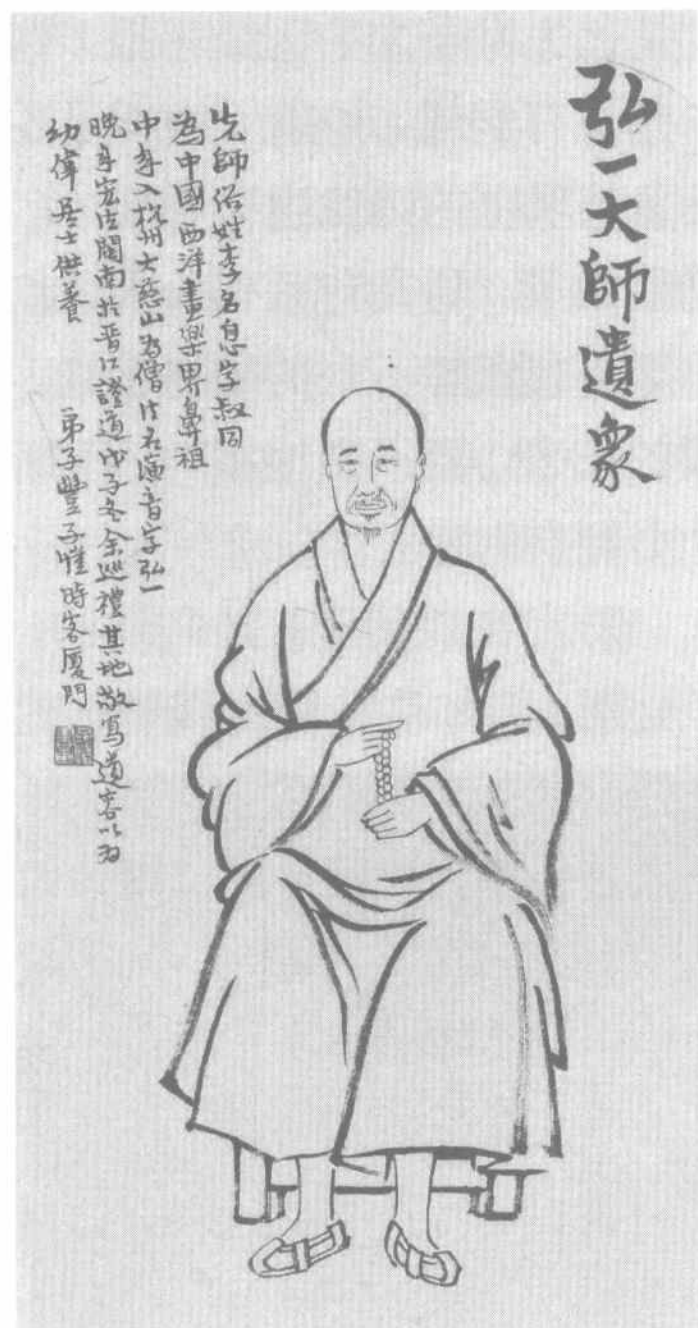 弘一大師遺象
先師俗姓李名息字叔同
為中國西洋畫樂界鼻祖
中年入杭州大慈山為僧法名演音字弘一
晚年宏法閩南於晉江證道戊子冬余巡禮其地敬寫道容以為
幼偉居士供養
弟子豐子愷時客廈門